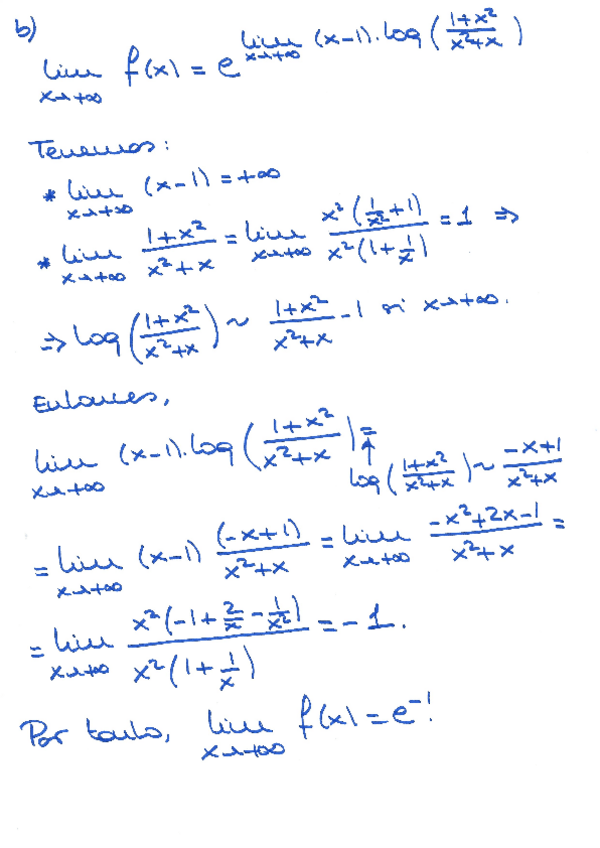 b)
lim_{x→+∞} f(x) = e^{lim_{x→+∞} (x-1)·log((1+x²)/(x²+x))}
Tenemos:
* lim_{x→+∞} (x-1) = +∞
* lim_{x→+∞} (1+x²)/(x²+x) = lim_{x→+∞} x²(1/x²+1)/x²(1+1/x) = 1 ⇒
⇒ log((1+x²)/(x²+x)) ~ (1+x²)/(x²+x) - 1 si x→+∞.
Entonces,
lim_{x→+∞} (x-1)·log((1+x²)/(x²+x)) =
↑ log((1+x²)/(x²+x)) ~ (-x+1)/(x²+x)
= lim_{x→+∞} (x-1) (-x+1)/(x²+x) = lim_{x→+∞} (-x²+2x-1)/(x²+x) =
= lim_{x→+∞} x²(-1+2/x-1/x²)/x²(1+1/x) = -1.
Por tanto, lim_{x→+∞} f(x) = e^{-1}.